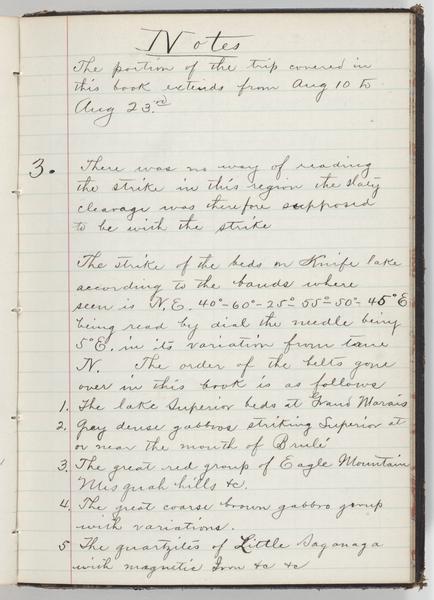 Notes
The portion of the trip covered in
this book extends from Aug 10 to
Aug 23.rd
3. There was no way of reading
the strike in this region the slaty
cleavage was therefore supposed
to be with the strike
The strike of the beds on Knife lake
according to the bands where
seen is N.E. 40°-60°-25° 55°-50°- 45°E
being read by dial the needle being
5°E. in its variation from true
N. The order of the belts gone
over in this book is as follows
1. The lake Superior beds at Grand Marais
2. Gray dense gabbros striking Superior at
or near the mouth of Brulé
3. The great red group of Eagle Mountain
Misquah hills &c.
4. The great coarse brown gabbro group
with variations.
5 The quartzites of Little Saganaga
with magnetic Iron &c &c